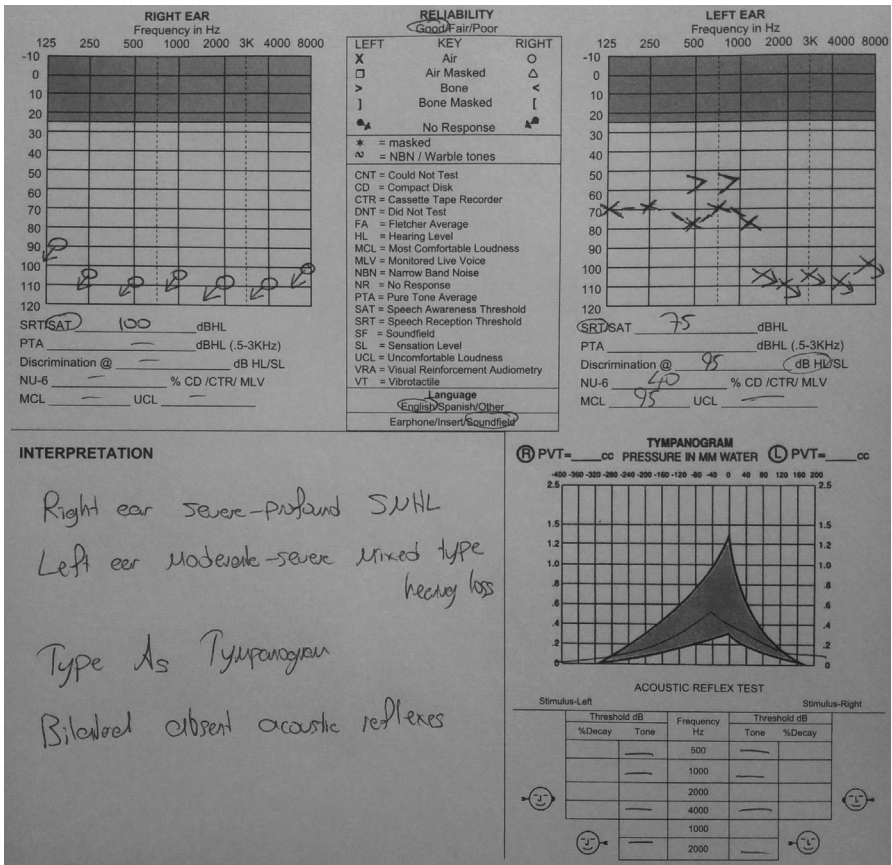 RIGHT EAR
Frequency in Hz
125 250 500 1000 2000 3K 4000 8000
-10
0
10
20
30
40
50
60
70
80
90
100
110
120
SRT/SAT 100 dBHL
PTA — dBHL (.5-3KHz)
Discrimination @ — dB HL/SL
NU-6 — % CD /CTR/ MLV
MCL — UCL —
RELIABILITY
Good/Fair/Poor
LEFT KEY RIGHT
X Air O
□ Air Masked △
> Bone <
] Bone Masked [
No Response
* = masked
= NBN / Warble tones
CNT = Could Not Test
CD = Compact Disk
CTR = Cassette Tape Recorder
DNT = Did Not Test
FA = Fletcher Average
HL = Hearing Level
MCL = Most Comfortable Loudness
MLV = Monitored Live Voice
NBN = Narrow Band Noise
NR = No Response
PTA = Pure Tone Average
SAT = Speech Awareness Threshold
SRT = Speech Reception Threshold
SF = Soundfield
SL = Sensation Level
UCL = Uncomfortable Loudness
VRA = Visual Reinforcement Audiometry
VT = Vibrotactile
Language
English/Spanish/Other
Earphone/Insert/Soundfield
LEFT EAR
Frequency in Hz
125 250 500 1000 2000 3K 4000 8000
-10
0
10
20
30
40
50
60
70
80
90
100
110
120
SRT/SAT 75 dBHL
PTA dBHL (.5-3KHz)
Discrimination @ 95 dB HL/SL
NU-6 40 % CD /CTR/ MLV
MCL 95 UCL —
INTERPRETATION
Right ear severe-profound SNHL
Left eer Moderate-severe mixed type
hearing loss
Type As Tympanogram
Bilateral absent acoustic reflexes
TYMPANOGRAM
R PVT=____cc PRESSURE IN MM WATER L PVT=____cc
-400 -360 -320 -280 -240 -200 -160 -120 -80 -40 0 40 80 120 160 200
2.5 2.5
1.5 1.5
1.2 1.2
1.0 1.0
.8 .8
.6 .6
.4 .4
.2 .2
0 0
ACOUSTIC REFLEX TEST
Stimulus-Left Stimulus-Right
Threshold dB Frequency Hz Threshold dB
%Decay Tone Tone %Decay
— 500 —
— 1000 —
2000
— 4000 —
1000
— 2000 —